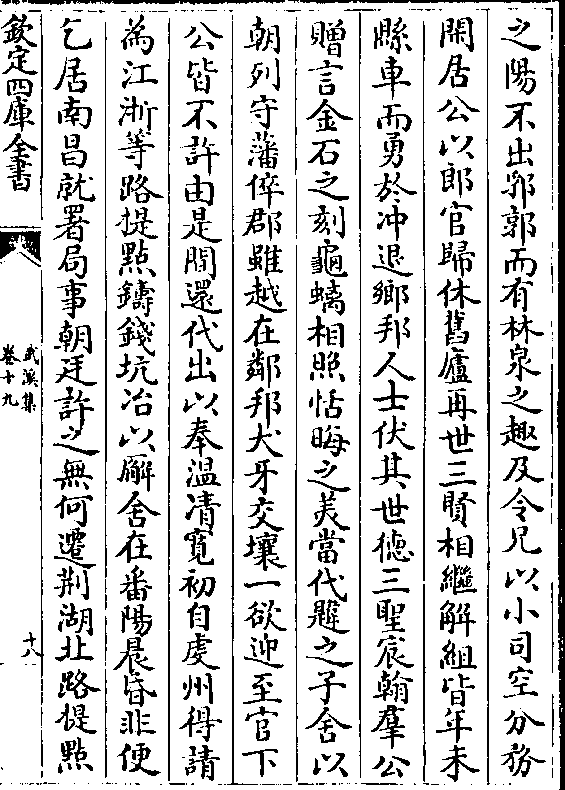 之陽不出郛郭而有林泉之趣及令兄以小司空分務
閑居公以郎官歸休舊廬再世三賢相繼解組皆年未
縣車而勇於沖退鄉邦人士伏其世德三聖宸翰羣公
贈言金石之刻龜螭相照恬晦之美當代韙之子舍以
朝列守藩倅郡雖越在鄰邦犬牙交壤一欲迎至官下
公皆不許由是間還代出以奉溫凊寬初自虔州得請
為江浙等路提點鑄錢坑冶以廨舍在番陽晨昏非便
乞居南昌就署局事朝廷許之無何遷荆湖北路提點
欽定四庫全書
武溪集
卷十九
十八